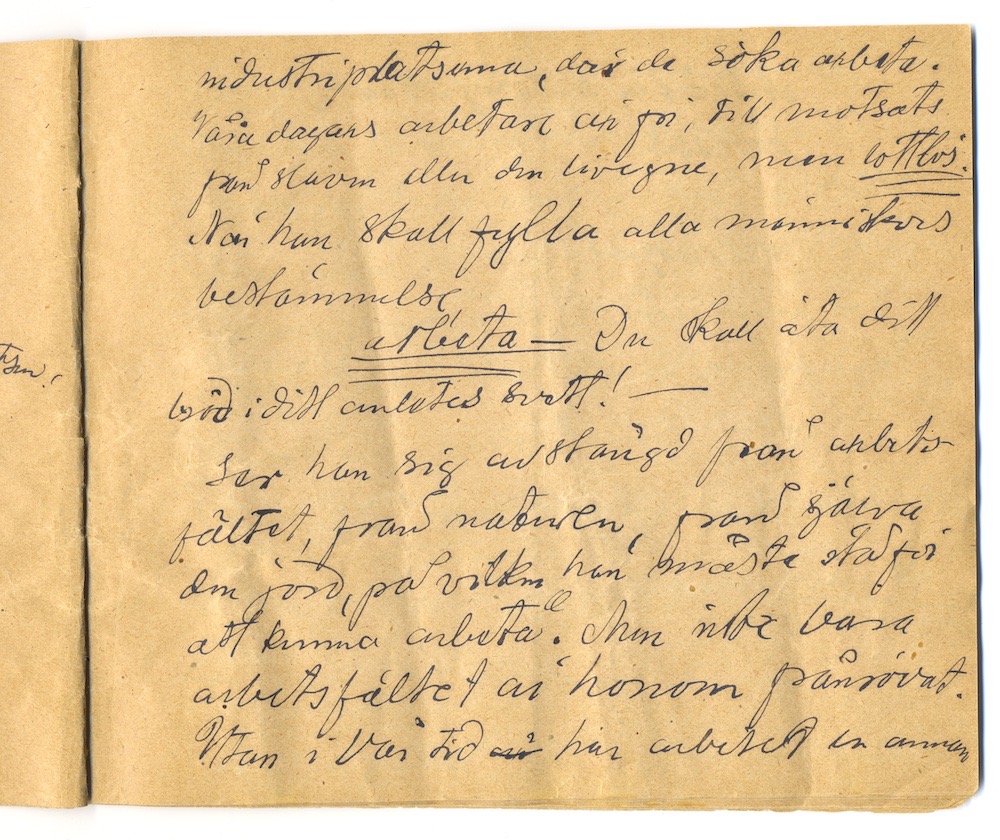 industriplatserna, där de söka arbeta.
Våra dagars arbetare är fri, till motsats
från slaven eller den livegne, men lottlös.
När han skall fylla alla människors
bestämmelse
arbeta — Du skall äta ditt
bröd i ditt anletes svett! —
ser han sig avstängd från arbets-
fältet, från naturen, från själva
den jord, på vilken han måste stå för
att kunna arbeta. Men icke bara
arbetsfältet är honom frånrövat.
Utan i vår tid har arbetet en annan